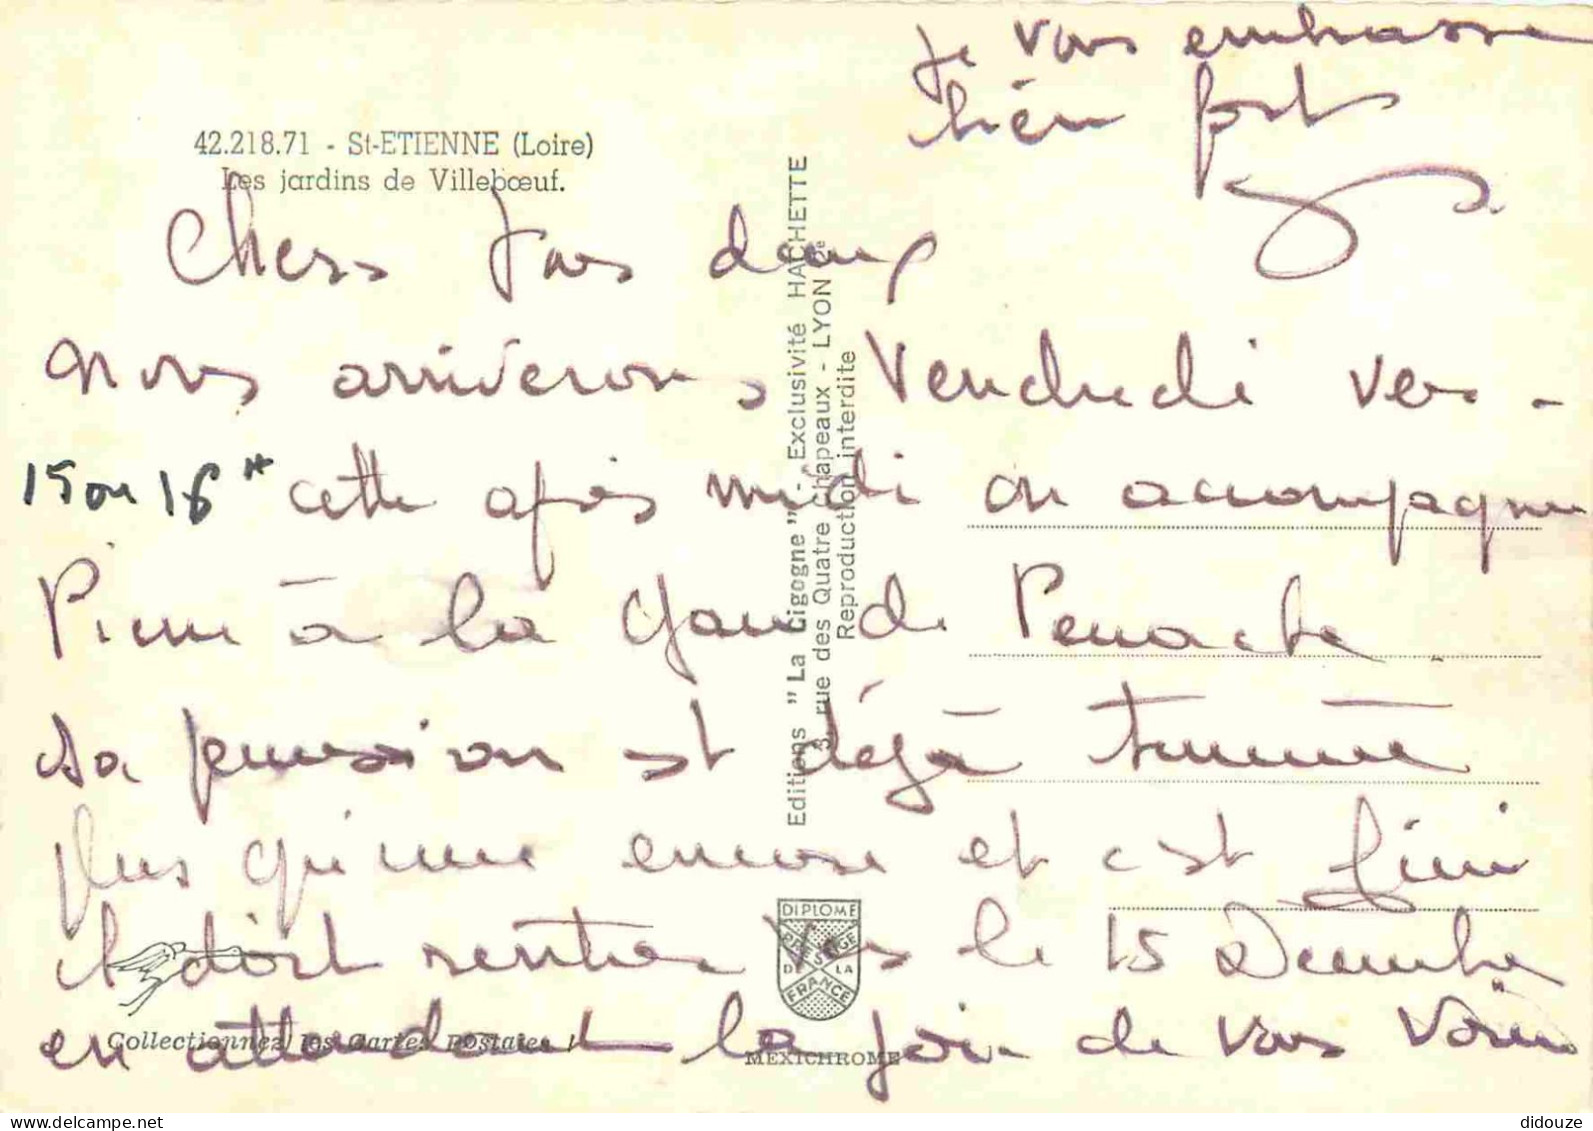 42.218.71 - St-ETIENNE (Loire)
Les jardins de Villebœuf.
Chers tous deux
nous arriverons Vendredi vers -
15 ou 16 H cette après midi on accompagne
Pierre à la gare de Perrache.
sa permission est déjà terminée
plus qu'une encore et c'est fini
il doit rentrer vers le 15 Decembre
en attendant la joie de vous voir
Je vous embrasse
bien fort
Editions "La Cigogne" - Exclusivité HACHETTE
3, rue des Quatre Chapeaux - LYON 2e
Reproduction interdite
DIPLOME
PRESTIGE
DE LA
FRANCE
Collectionnez les Cartes Postales !
MEXICHROME
delcampe.net
didouze